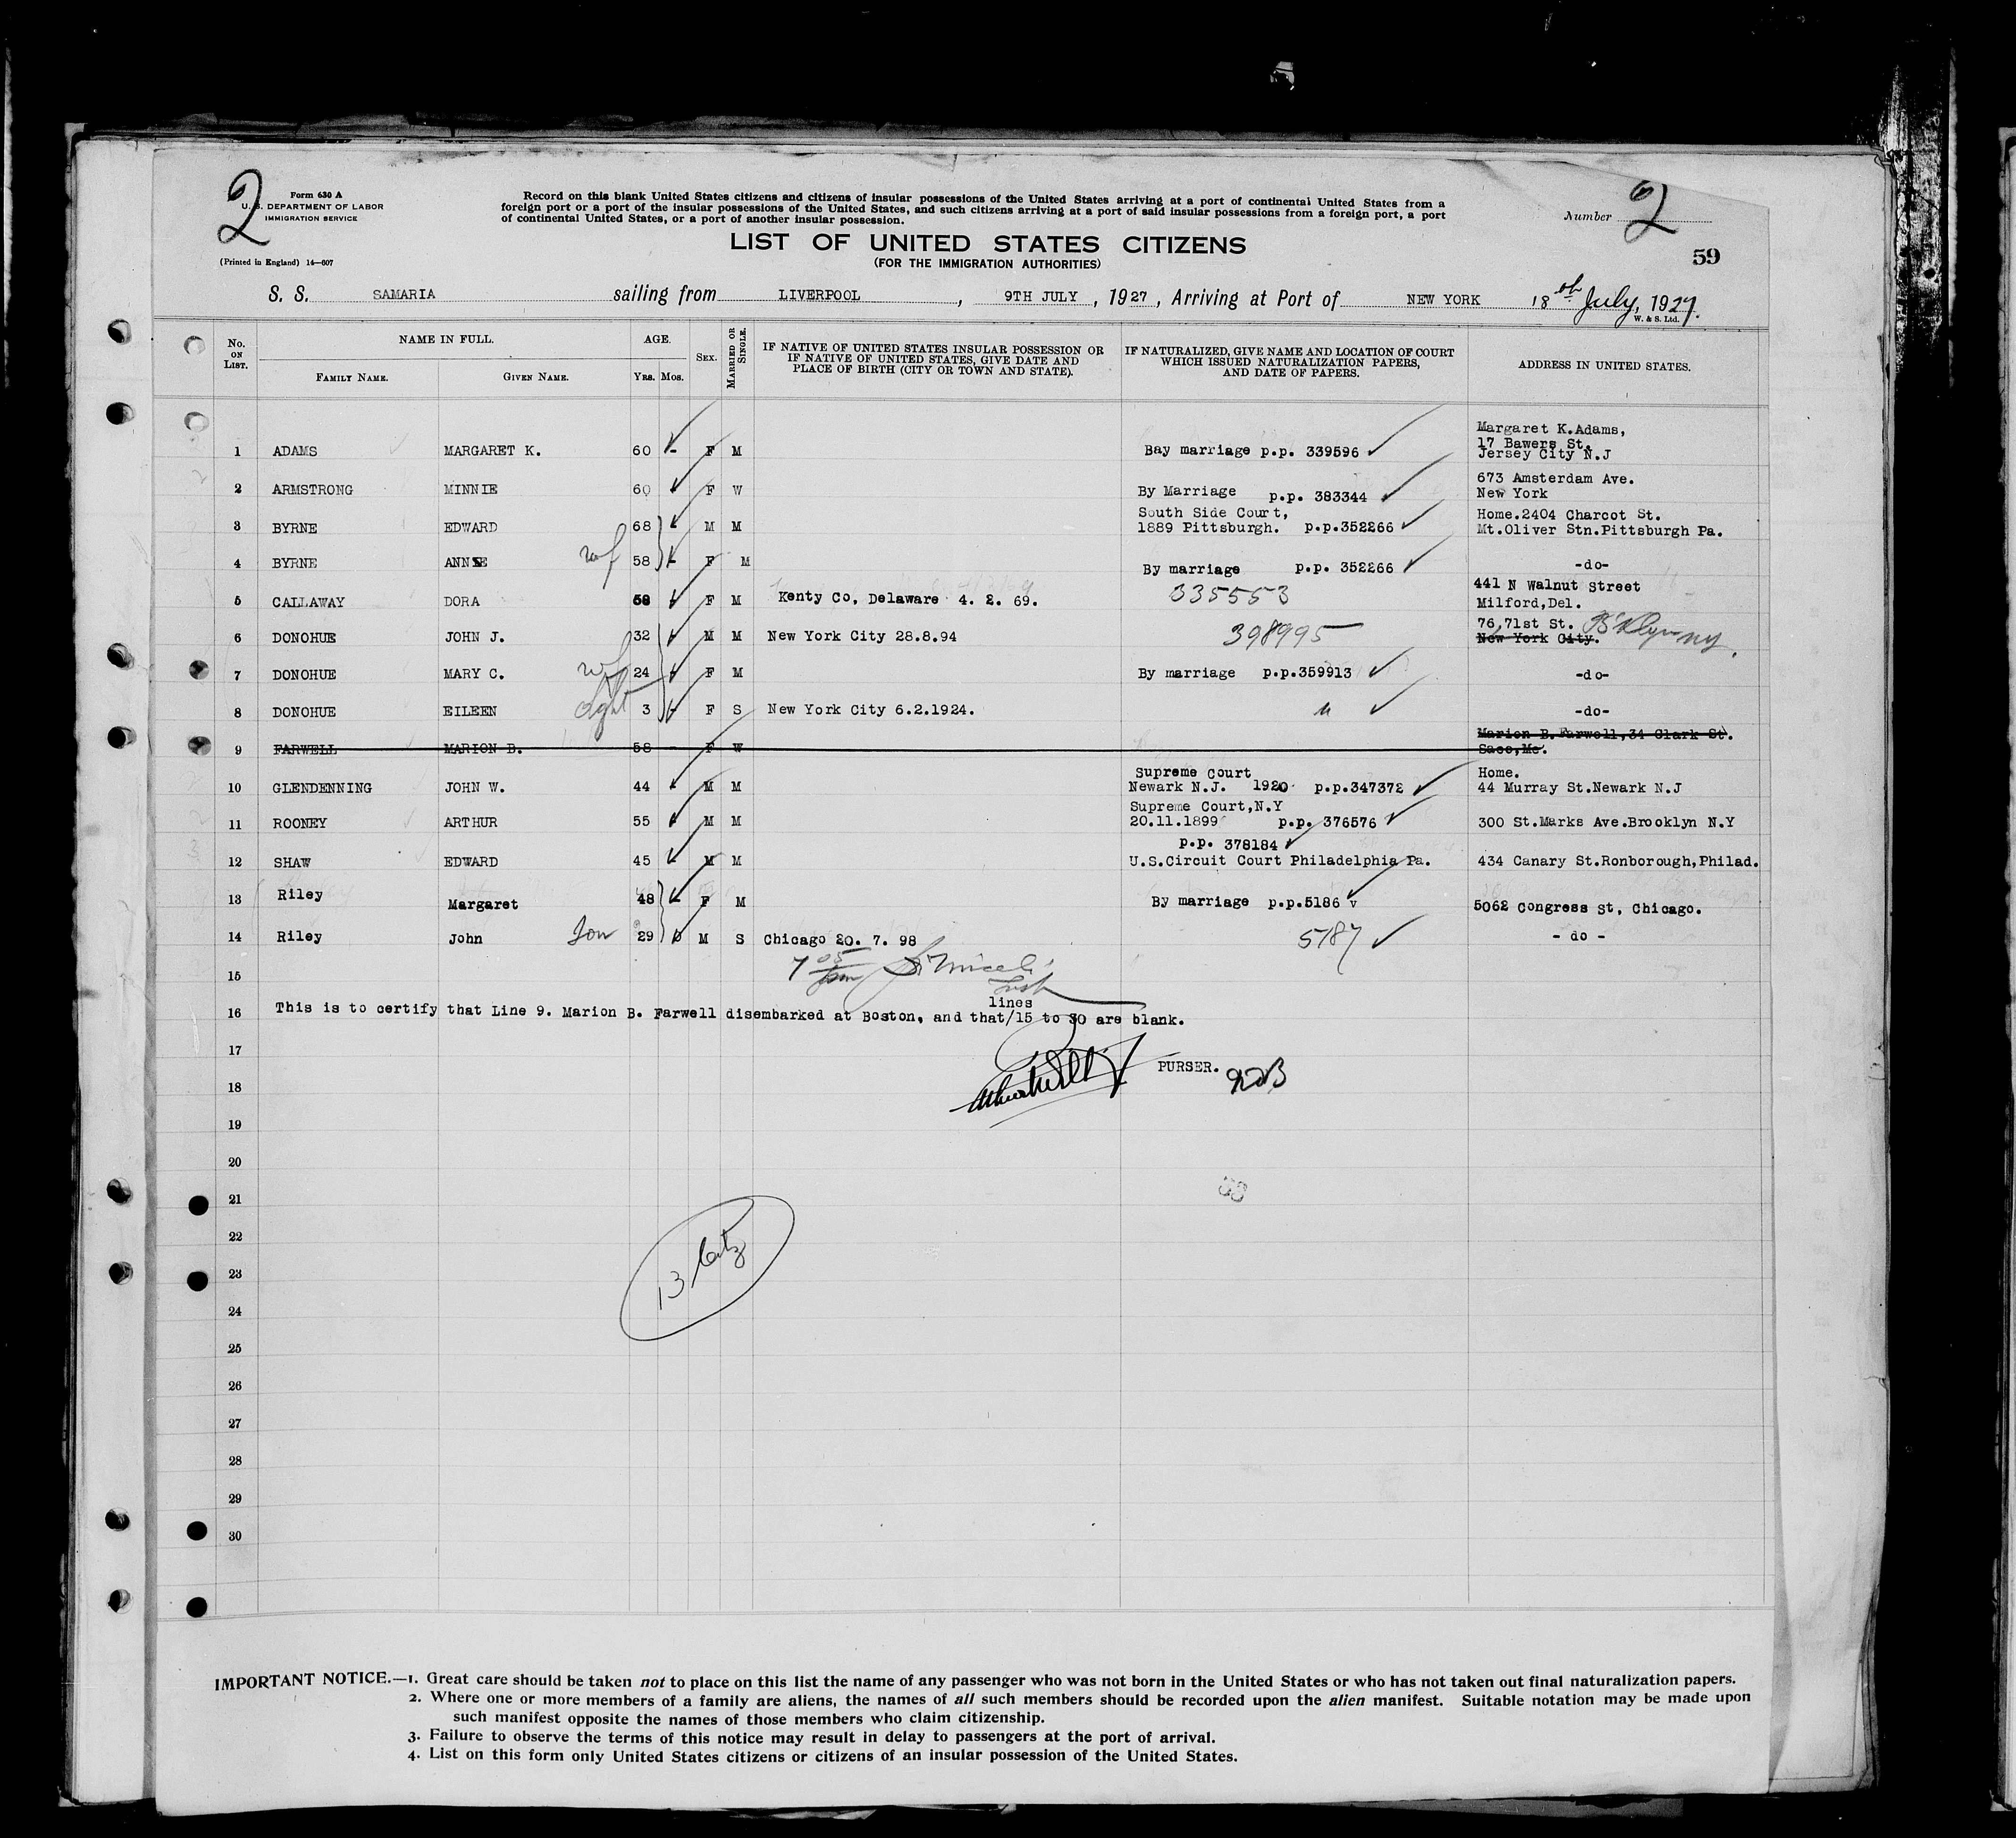 2
Form 630 A
U. S. DEPARTMENT OF LABOR
IMMIGRATION SERVICE
(Printed in England) 14—607
Record on this blank United States citizens and citizens of insular possessions of the United States arriving at a port of continental United States from a
foreign port or a port of the insular possessions of the United States, and such citizens arriving at a port of said insular possessions from a foreign port, a port
of continental United States, or a port of another insular possession.
Number 2
LIST OF UNITED STATES CITIZENS
(FOR THE IMMIGRATION AUTHORITIES)
59
S. S. SAMARIA sailing from LIVERPOOL, 9TH JULY, 1927, Arriving at Port of NEW YORK 18th July, 1927.
W. & S. Ltd.
No. ON LIST. NAME IN FULL. FAMILY NAME. GIVEN NAME. AGE. YRS. MOS. SEX. MARRIED OR SINGLE. IF NATIVE OF UNITED STATES INSULAR POSSESSION OR IF NATIVE OF UNITED STATES, GIVE DATE AND PLACE OF BIRTH (CITY OR TOWN AND STATE). IF NATURALIZED, GIVE NAME AND LOCATION OF COURT WHICH ISSUED NATURALIZATION PAPERS, AND DATE OF PAPERS. ADDRESS IN UNITED STATES.
1 ADAMS MARGARET K. 60 - F M Bay marriage p.p. 339596 Margaret K.Adams, 17 Bawers St. Jersey City N.J
2 ARMSTRONG MINNIE 60 F W By Marriage p.p. 383344 673 Amsterdam Ave. New York
3 BYRNE EDWARD 68 M M South Side Court, 1889 Pittsburgh. p.p.352266 Home.2404 Charcot St. Mt.Oliver Stn.Pittsburgh Pa.
4 BYRNE ANNIE wf 58 - F M By marriage p.p. 352266 -do-
5 CALLAWAY DORA 58 F M Kenty Co, Delaware 4. 2. 69. 335553 441 N Walnut Street Milford,Del.
6 DONOHUE JOHN J. 32 M M New York City 28.8.94 398995 76,71st St. New York City. B'klyn NY.
7 DONOHUE MARY C. wf 24 F M By marriage p.p.359913 -do-
8 DONOHUE EILEEN dght 3 - F S New York City 6.2.1924. " -do-
9 FARWELL MARION B. 58 - F W Marion B. Farwell,34 Clark St. Saco,Me.
10 GLENDENNING JOHN W. 44 M M Supreme Court Newark N.J. 1920 p.p.347372 Home. 44 Murray St.Newark N.J
11 ROONEY ARTHUR 55 M M Supreme Court,N.Y 20.11.1899 p.p. 376576 300 St.Marks Ave.Brooklyn N.Y
12 SHAW EDWARD 45 M M p.p. 378184 U.S.Circuit Court Philadelphia Pa. 434 Canary St.Ronborough,Philad.
13 Riley Margaret 48 F M By marriage p.p.5186 v 5062 Congress St, Chicago.
14 Riley John Son 29 M S Chicago 20. 7. 98 5187 - do -
15 7 05 pm
16 This is to certify that Line 9. Marion B. Farwell disembarked at Boston, and that/lines 15 to 30 are blank.
17 PURSER.
18
19
20
21
22
23
24
25
26
27
28
29
30
13 Citz
IMPORTANT NOTICE.—1. Great care should be taken not to place on this list the name of any passenger who was not born in the United States or who has not taken out final naturalization papers.
2. Where one or more members of a family are aliens, the names of all such members should be recorded upon the alien manifest. Suitable notation may be made upon
such manifest opposite the names of those members who claim citizenship.
3. Failure to observe the terms of this notice may result in delay to passengers at the port of arrival.
4. List on this form only United States citizens or citizens of an insular possession of the United States.